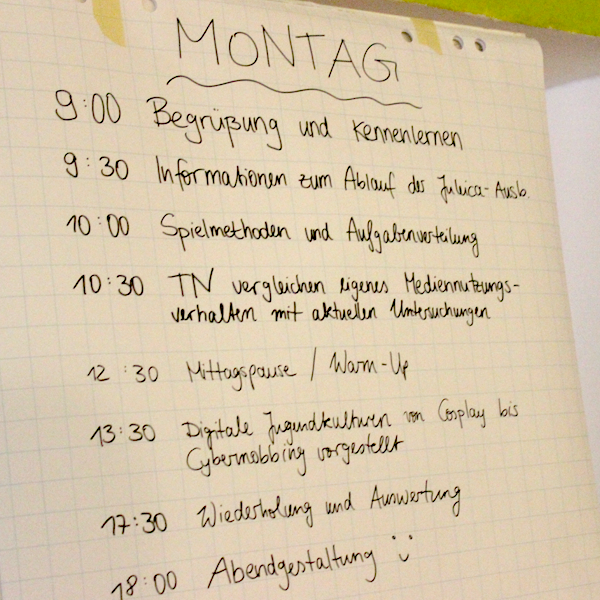 MONTAG
9:00 Begrüßung und Kennenlernen
9:30 Informationen zum Ablauf der Juleica-Ausb.
10:00 Spielmethoden und Aufgabenverteilung
10:30 TN vergleichen eigenes Mediennutzungs-
verhalten mit aktuellen Untersuchungen
12:30 Mittagspause / Warm-Up
13:30 Digitale Jugendkulturen von Cosplay bis
Cybermobbing vorgestellt
17:30 Wiederholung und Auswertung
18:00 Abendgestaltung